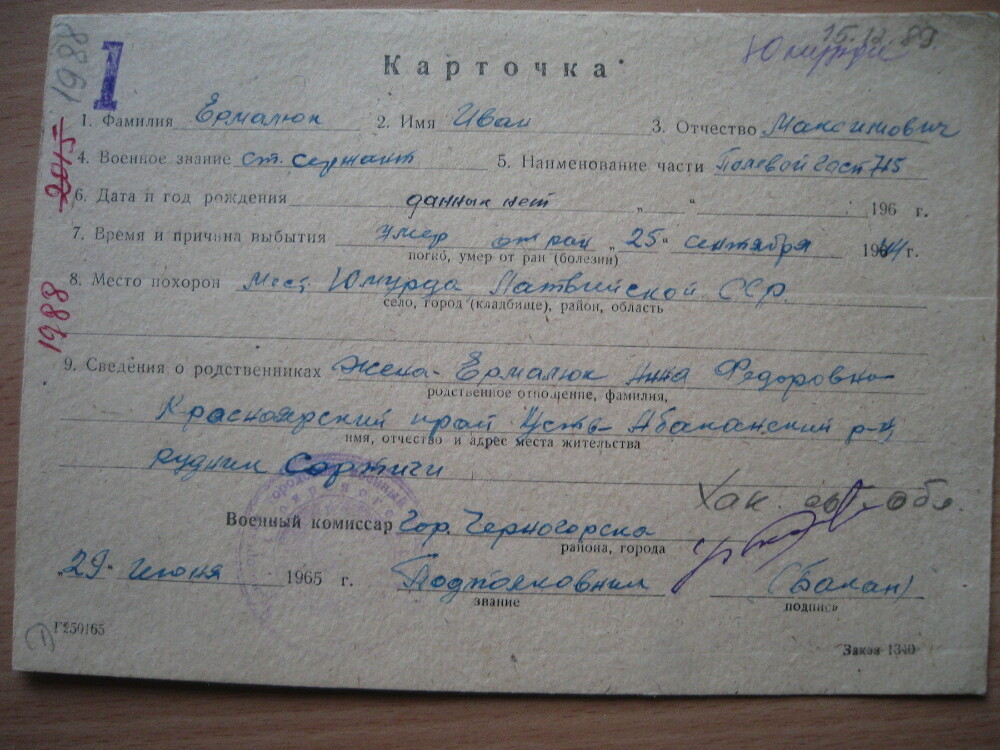 1988
1
15.12.89
Юмурда
Карточка
1. Фамилия Ермалюк 2. Имя Иван 3. Отчество Максимович
2045
4. Военное звание ст. сержант 5. Наименование части Полевой госп 715
6. Дата и год рождения данных нет „ “ 196 г.
7. Время и причина выбытия умер от ран „25“ сентября 1944 г.
погиб, умер от ран (болезни)
1988
8. Место похорон Мест. Юмурда Латвийской ССР.
село, город (кладбище), район, область
9. Сведения о родственниках Жена- Ермалюк Анна Федоровна
родственное отношение, фамилия,
Красноярский край Усть-Абаканский р-н
имя, отчество и адрес места жительства
рудник Соргичи
Хак. авт. обл.
Военный комиссар Гор. Черногорска
района, города
„29“ июня 1965 г. Подполковник (Балан)
звание подпись
1
Г250165
Заказ 1340